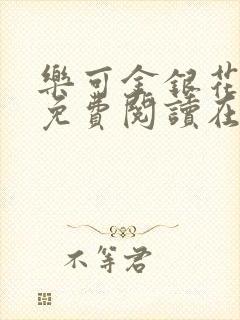 樂可金銀花
免費閱讀在
不等君